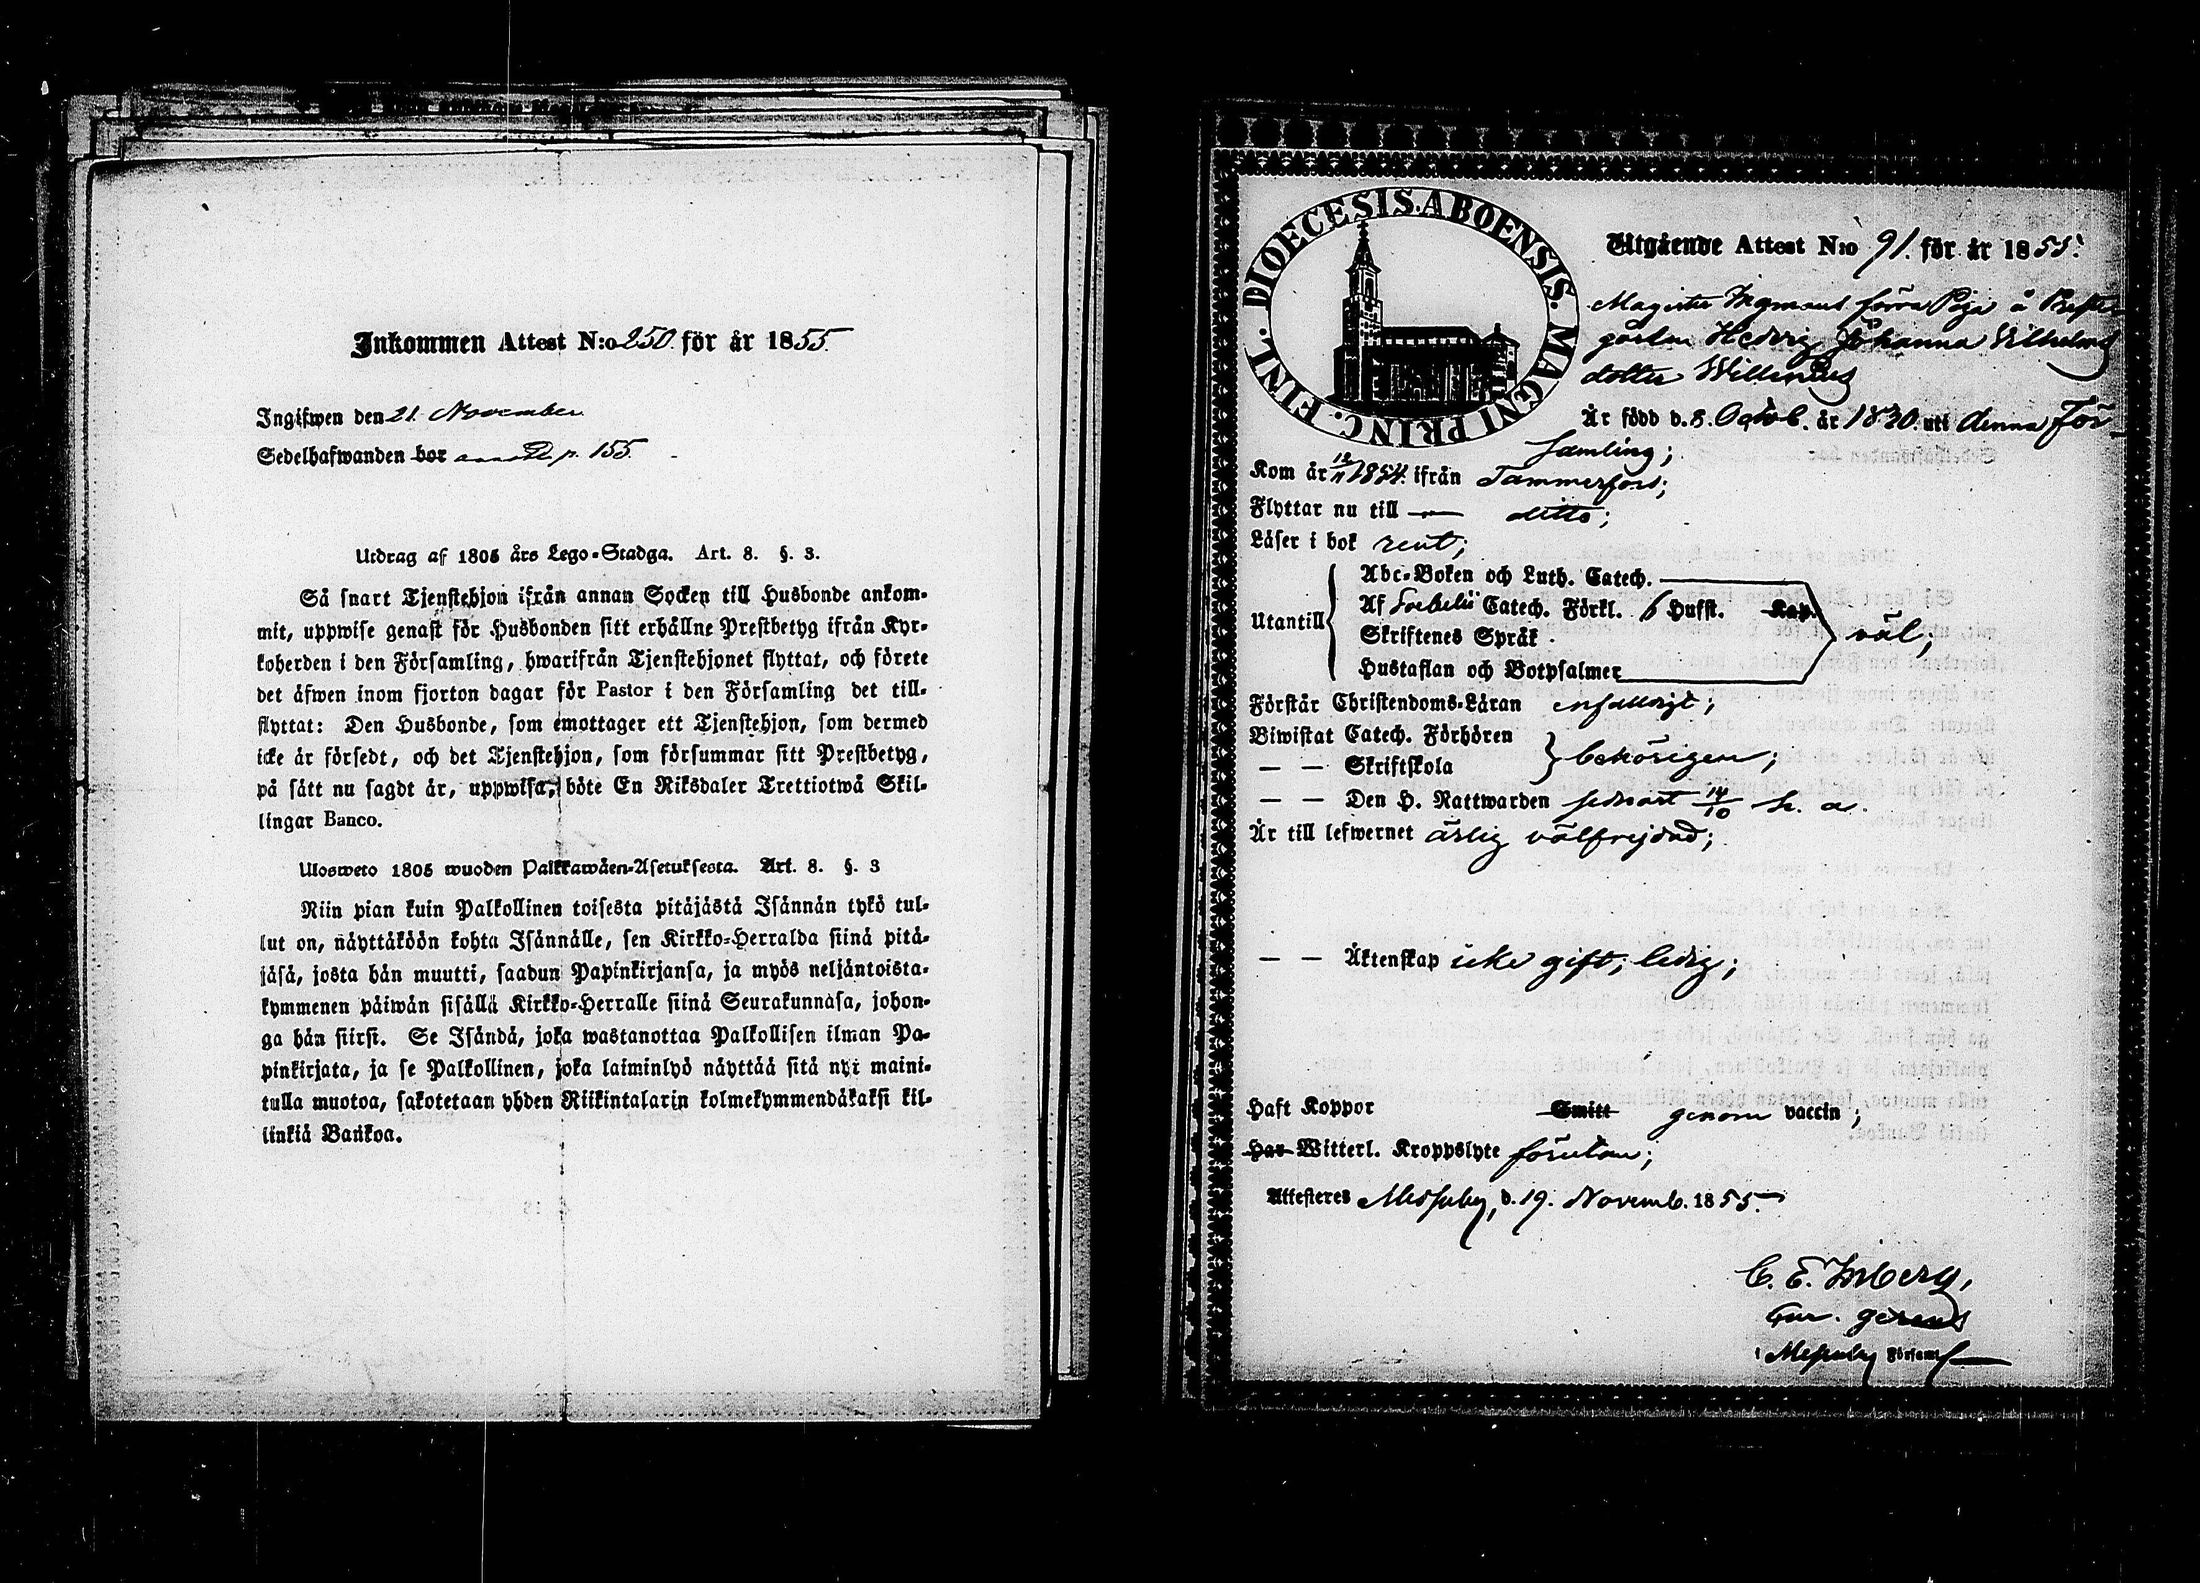 Inkommen Attest N:o 250 för år 1855.
Ingifwen den 21 November
Sedelhafwanden bor p. 155.
Utdrag af 1805 års Lego-Stadga. Art. 8. §. 3.
Så snart Tjenstehjon ifrån annan Socken till Husbonde ankom-
mit, uppwise genast för Husbonden sitt erhållne Prestbetyg ifrån Kyr-
koherden i den Församling, hwarifrån Tjenstehjonet flyttat, och förete
det äfwen inom fjorton dagar för Pastor i den Församling det till-
flyttat: Den Husbonde, som emottager ett Tjenstehjon, som dermed
icke är försedt, och det Tjenstehjon, som försummar sitt Prestbetyg,
på sätt nu sagdt är, uppwisa, böte En Riksdaler Trettiotwå Skil-
lingar Banco.
Ulosweto 1805 wuoden Palkkawäen-Asetuksesta. Art. 8. §. 3
Niin pian kuin Palkollinen toisesta pitäjästä Isännän tykö tul-
lut on, näyttäköön kohta Isännälle, sen Kirkko-Herralda siinä pitä-
jäsä, josta hän muutti, saadun Papinkirjansa, ja myös neljäntoista-
kymmenen päiwän sisällä Kirkko-Herralle siinä Seurakunnasa, johon-
ga hän siirsi. Se Isändä, joka wastanottaa Palkollisen ilman Pa-
pinkirjata, ja se Palkollinen, joka laiminlyö näyttää sitä nyt maini-
tulla muotoa, sakotetaan yhden Riikintalarin kolmekymmendäkaksi kil-
linkiä Bankoa.
DIOECESIS. ABOENSIS. MAGNI PRINC. FINL.
Utgående Attest N:o 91. för år 1855.
Magister Ingmans förra Piga å Prest-
gården Hedvig Johanna Vilhelms
dotter Willenius
Är född d. 8. Octob. år 1830. uti denna För-
samling;
Kom år 12/11 1854. ifrån Tammerfors;
Flyttar nu till — ditto;
Läser i bok rent;
Utantill
Abc-Boken och Luth. Catech.
Af Svebelii Catech. Förkl. 6 Hufst. Kap.
Skriftenes Språk
Hustaflan och Botpsalmer
väl;
Förstår Christendoms-Läran enfalldigt;
Biwistat Catech. Förhören
— — Skriftskola
behörigen;
— — Den H. Nattwarden sednast 14/10 h. a.
Är till lefwernet ärlig välfrejdad;
— — Äktenskap icke gift; ledig;
Haft Koppor Smitt genom vaccin;
Har Witterl. Kroppslyte förutan;
Attesteres Messuby, d. 19. Novemb. 1855.
C. E.
Cur. gerens
i Messuby Församl.